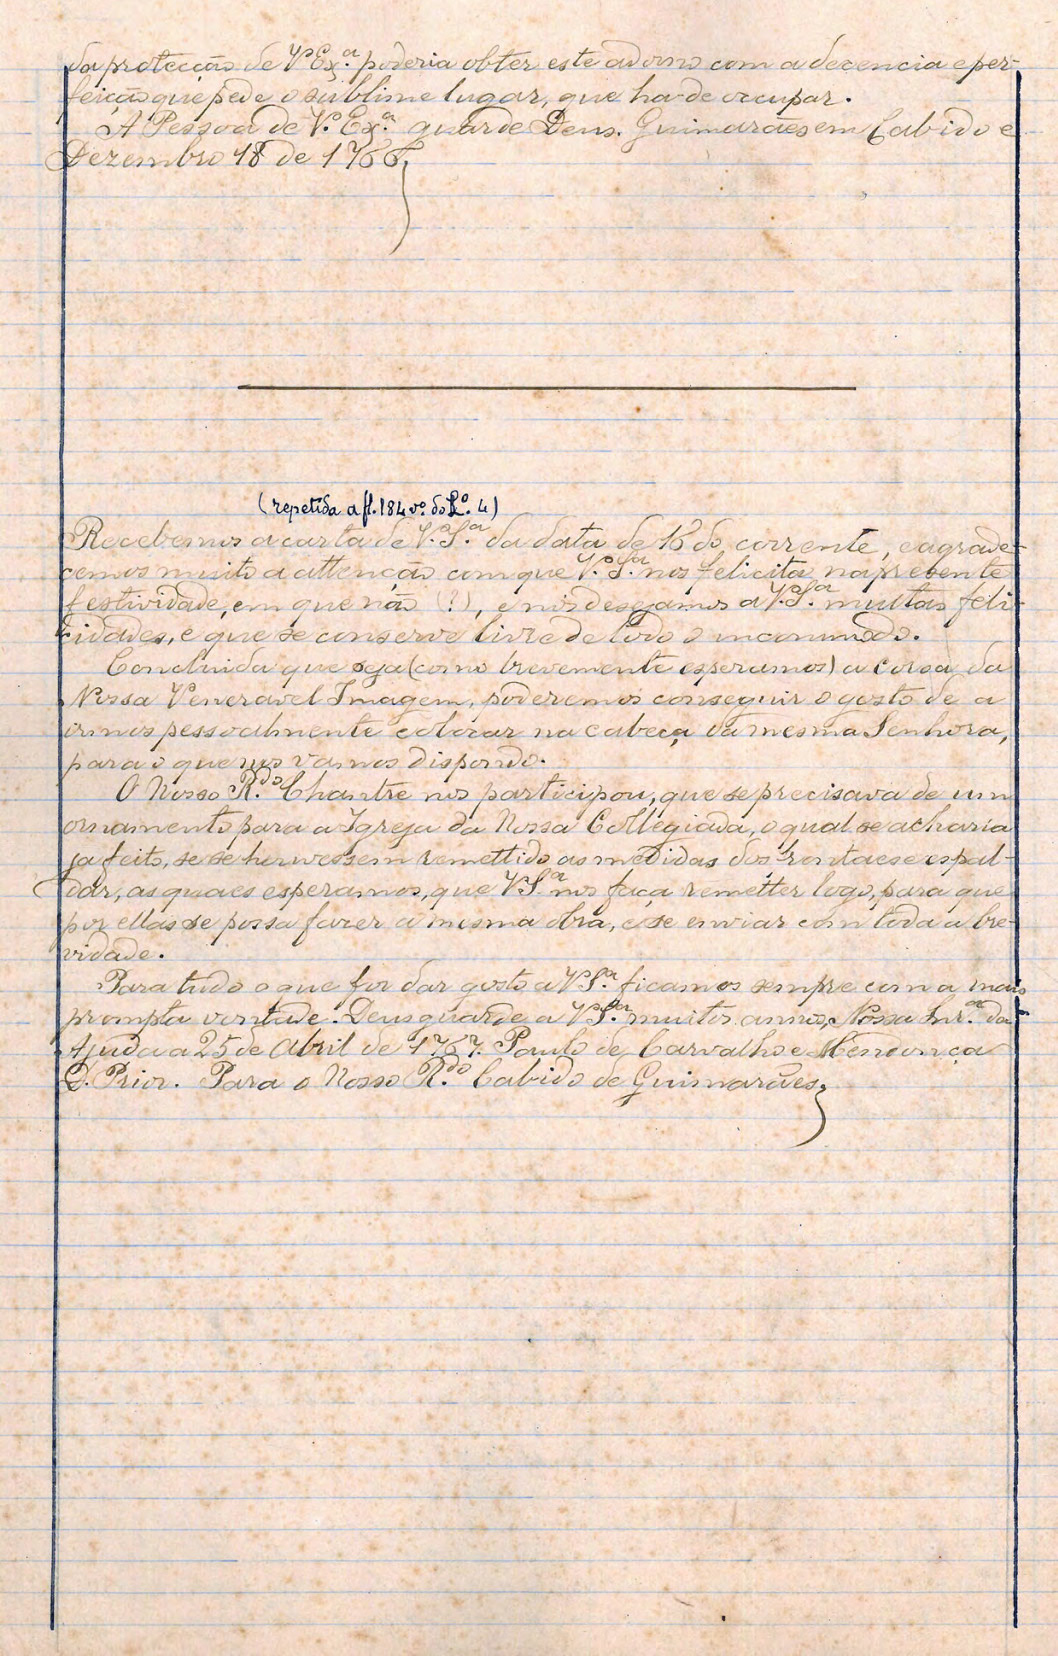 da protecção de V Ex.ª poderia obter este adorno com a decencia e per-
feição que pede o sublime lugar, que ha-de occupar.
A Pessoa de V. Ex.ª guarde Deus. Guimarães em Cabido e
Dezembro 18 de 1766,
(repetida a fl. 184 vº. do Lº. 4)
Recebemos a carta de V. S.ª da data de 16 do corrente, e agrade-
cemos muito a attenção com que V. S.ª nos felicita na presente
festividade, em que não (?), e nós desejamos a V. S.ª muitas feli-
cidades, e que se conserve livre de todo o incommodo.
Concluida que seja (como brevemente esperamos) a corôa da
Nossa Veneravel Imagem, poderemos conseguir o gosto de a
irmos pessoalmente colocar na cabeça da mesma Senhora,
para o que nos vamos dispondo.
O Nosso R.do Chantre nos participou, que se precisava de um
ornamento para a Igreja da Nossa Collegiada, o qual se acharia
ja feito, se se houvessem remettido as medidas dos frontaes e espal-
dar, as quaes esperamos, que V S.ª nos faça remetter logo, para que
por ellas se possa fazer a mesma obra, e se enviar com toda a bre-
vidade.
Para tudo o que for dar gosto a V S.ª ficamos sempre com a mais
prompta vontade. Deus guarde a V S.ª muitos annos. Nossa Snr.ª da
Ajuda a 25 de Abril de 1767. Paulo de Carvalho e Mendonça
D. Prior. Para o Nosso R.do Cabido de Guimarães,